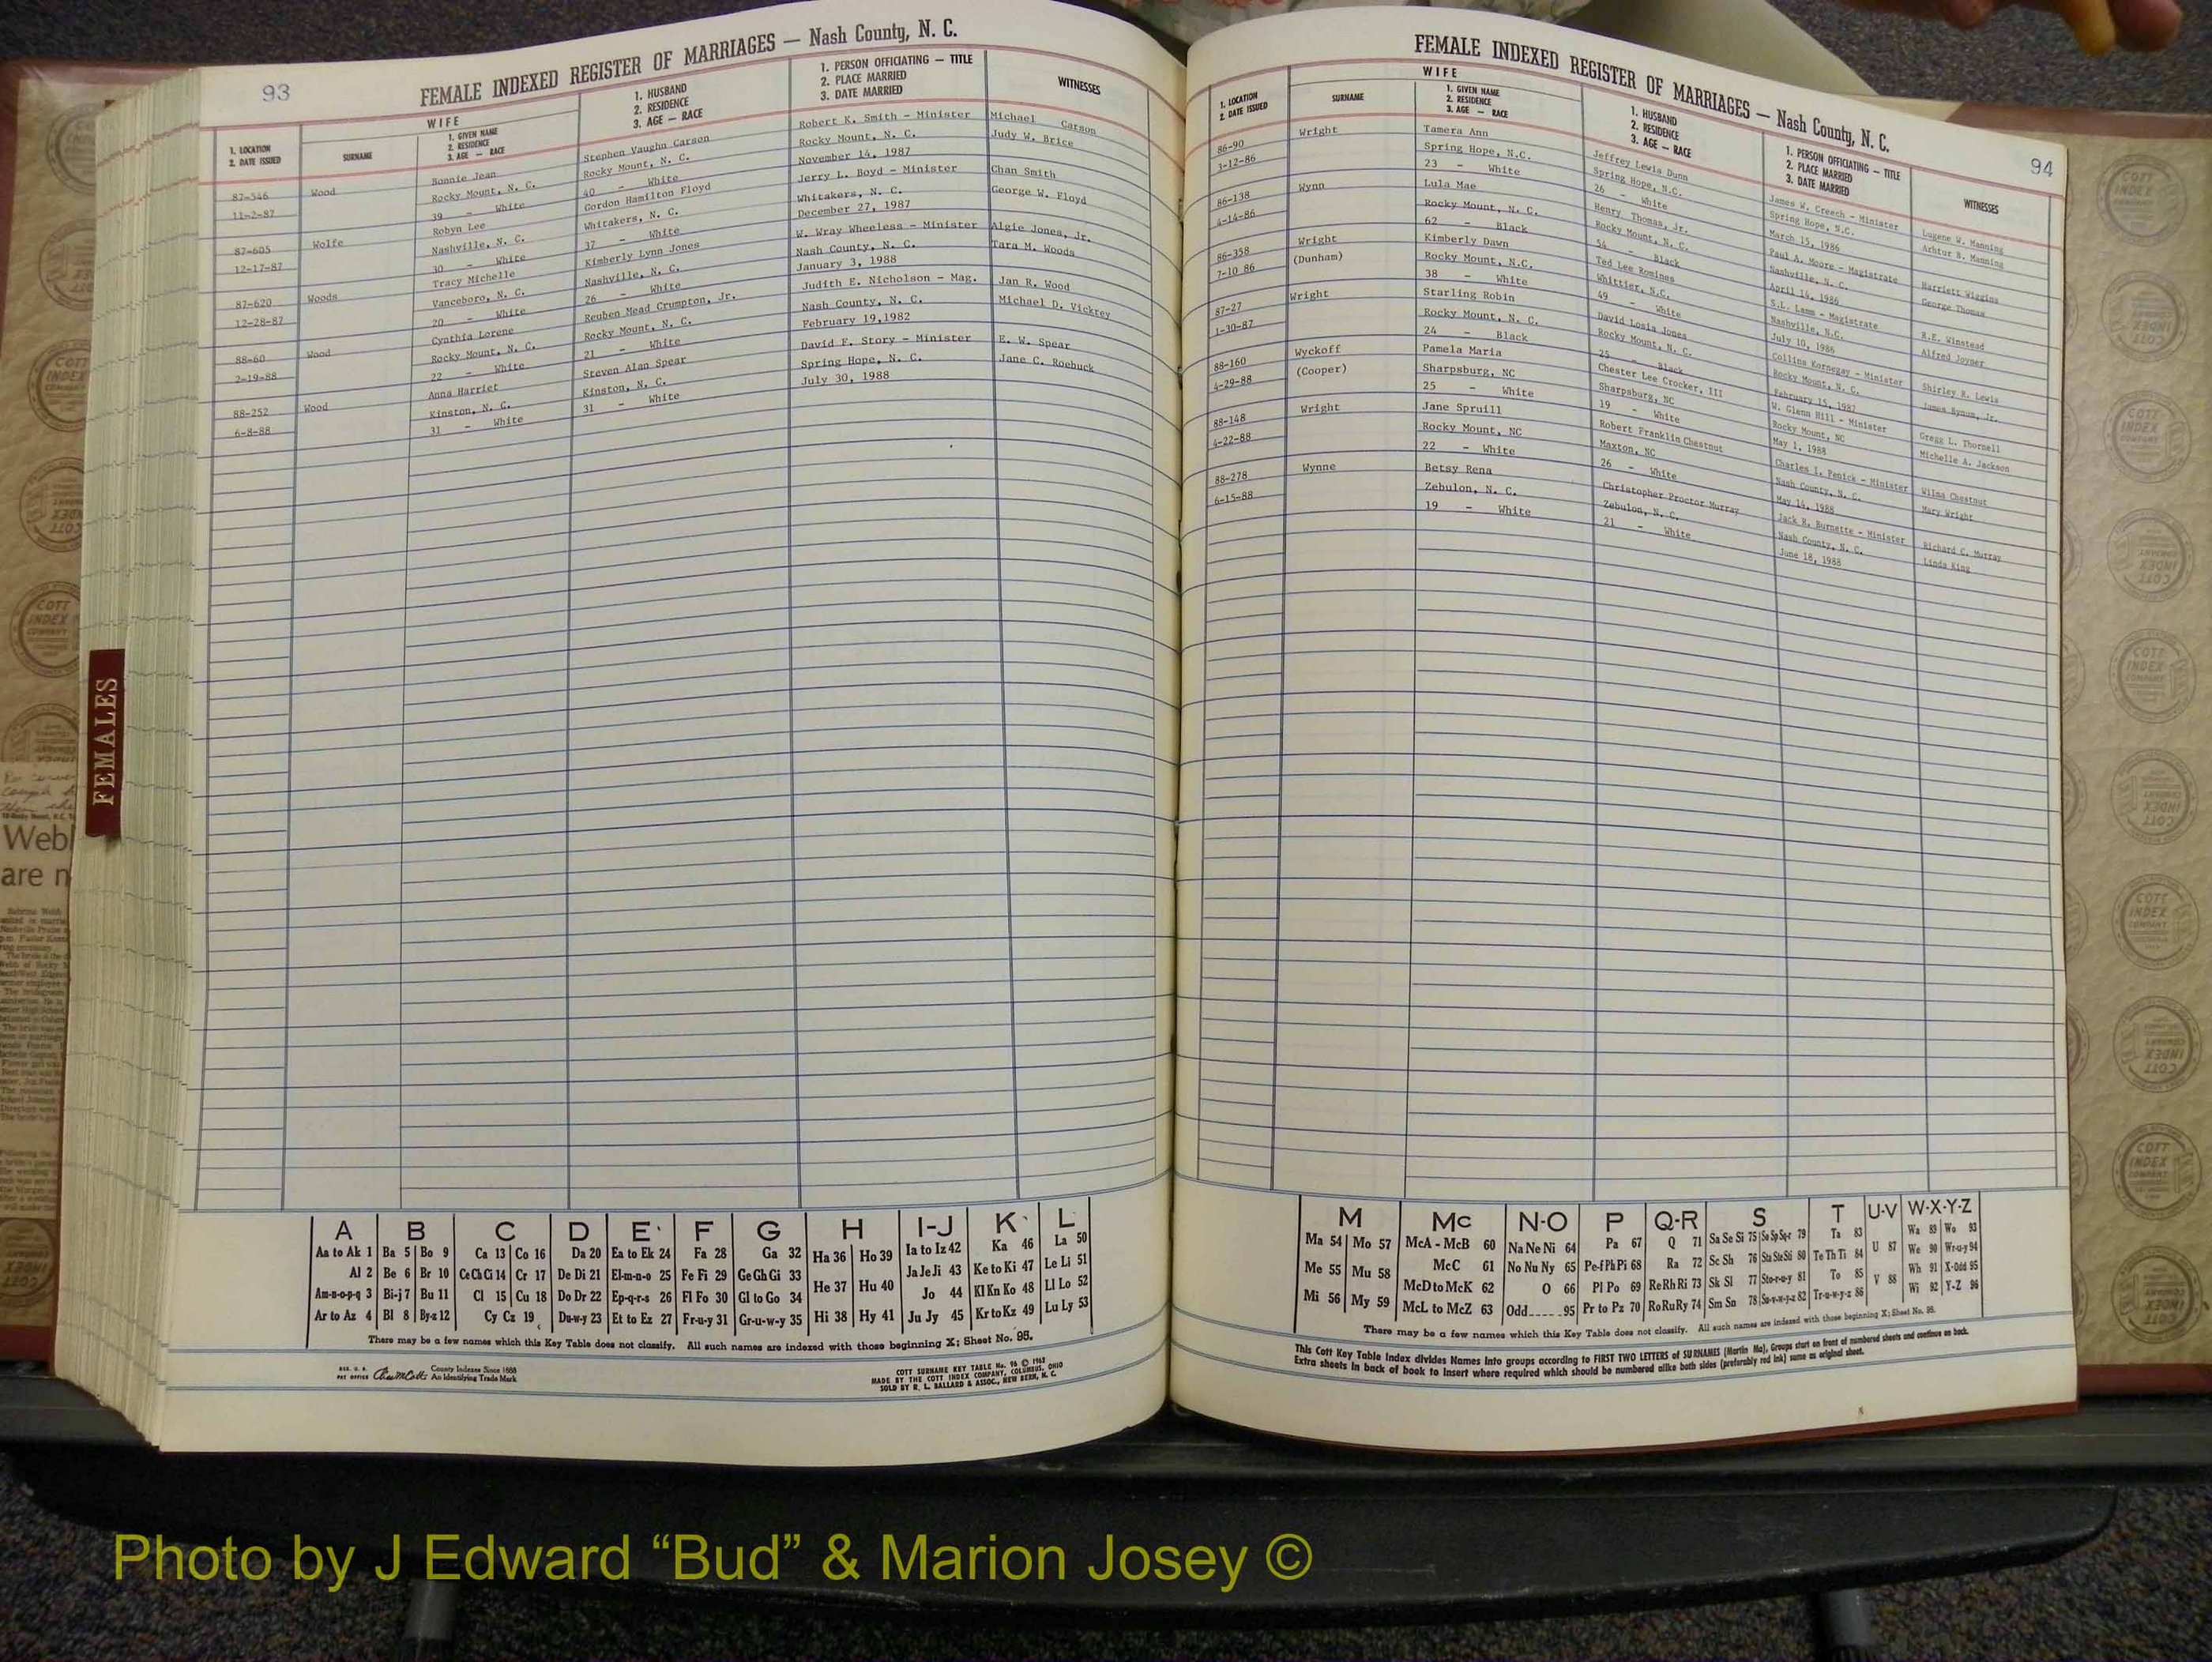 93
FEMALE INDEXED REGISTER OF MARRIAGES — Nash County, N. C.
1. LOCATION
2. DATE ISSUED
WIFE
SURNAME
1. GIVEN NAME
2. RESIDENCE
3. AGE — RACE
1. HUSBAND
2. RESIDENCE
3. AGE — RACE
1. PERSON OFFICIATING — TITLE
2. PLACE MARRIED
3. DATE MARRIED
WITNESSES
87-546 Wood Bonnie Jean Stephen Vaughn Carson Robert K. Smith - Minister Michael Carson
11-2-87 Rocky Mount, N. C. Rocky Mount, N. C. Rocky Mount, N. C. Judy W. Brice
39 - White 40 - White November 14, 1987
87-605 Wolfe Robyn Lee Gordon Hamilton Floyd Jerry L. Boyd - Minister Chan Smith
12-17-87 Nashville, N. C. Whitakers, N. C. Whitakers, N. C. George W. Floyd
30 - White 37 - White December 27, 1987
87-620 Woods Tracy Michelle Kimberly Lynn Jones W. Wray Wheeless - Minister Algie Jones, Jr.
12-28-87 Vanceboro, N. C. Nashville, N. C. Nash County, N. C. Tara M. Woods
20 - White 26 - White January 3, 1988
88-60 Wood Cynthia Lorene Reuben Mead Crumpton, Jr. Judith E. Nicholson - Mag. Jan R. Wood
2-19-88 Rocky Mount, N. C. Rocky Mount, N. C. Nash County, N. C. Michael D. Vickrey
22 - White 21 - White February 19,1982
88-252 Wood Anna Harriet Steven Alan Spear David F. Story - Minister E. W. Spear
6-8-88 Kinston, N. C. Kinston, N. C. Spring Hope, N. C. Jane C. Roebuck
31 - White 31 - White July 30, 1988
A B C D E F G H I-J K L
Aa to Ak 1 Ba 5 Bo 9 Ca 13 Co 16 Da 20 Ea to Ek 24 Fa 28 Ga 32 Ha 36 Ho 39 Ia to Iz 42 Ka 46 La 50
Al 2 Be 6 Br 10 Ce Ch Ci 14 Cr 17 De Di 21 El-m-n-o 25 Fe Fi 29 Ge Gh Gi 33 He 37 Hu 40 Ja Je Ji 43 Ke to Ki 47 Le Li 51
Am-n-o-p-q 3 Bi-j 7 Bu 11 Cl 15 Cu 18 Do Dr 22 Ep-q-r-s 26 Fl Fo 30 Gl to Go 34 Hi 38 Hy 41 Jo 44 Kl Kn Ko 48 Ll Lo 52
Ar to Az 4 Bl 8 By-z 12 Cy Cz 19 Du-w-y 23 Et to Ez 27 Fr-u-y 31 Gr-u-w-y 35 Ju Jy 45 Kr to Kz 49 Lu Ly 53
There may be a few names which this Key Table does not classify. All such names are indexed with those beginning X; Sheet No. 95.
REG. U. S. PAT OFFICE
County Indexes Since 1888
An Identifying Trade Mark
COTT SURNAME KEY TABLE No. 96 © 1962
MADE BY THE COTT INDEX COMPANY, COLUMBUS, OHIO
SOLD BY R. L. BALLARD & ASSOC., NEW BERN, N. C.
FEMALE INDEXED REGISTER OF MARRIAGES — Nash County, N. C.
94
1. LOCATION
2. DATE ISSUED
WIFE
SURNAME
1. GIVEN NAME
2. RESIDENCE
3. AGE — RACE
1. HUSBAND
2. RESIDENCE
3. AGE — RACE
1. PERSON OFFICIATING — TITLE
2. PLACE MARRIED
3. DATE MARRIED
WITNESSES
86-90 Wright Tamera Ann Jeffrey Lewis Dunn James W. Creech - Minister Lugene W. Manning
3-12-86 Spring Hope, N.C. Spring Hope, N.C. Spring Hope, N.C. Arhtur B. Manning
23 - White 26 - White March 15, 1986
86-138 Wynn Lula Mae Henry Thomas, Jr. Paul A. Moore - Magistrate Harriett Wiggins
4-14-86 Rocky Mount, N. C. Rocky Mount, N. C. Nashville, N. C. George Thomas
62 - Black 54 - Black April 14, 1986
86-358 Wright Kimberly Dawn Ted Lee Romines S.L. Lamm - Magistrate R.E. Winstead
7-10 86 (Dunham) Rocky Mount, N.C. Whittier, N.C. Nashville, N.C. Alfred Joyner
38 - White 49 - White July 10, 1986
87-27 Wright Starling Robin David Losia Jones Collins Kornegay - Minister Shirley R. Lewis
1-30-87 Rocky Mount, N. C. Rocky Mount, N. C. Rocky Mount, N. C. James Bynum, Jr.
24 - Black 25 - Black February 15, 1987
88-160 Wyckoff Pamela Maria Chester Lee Crocker, III W. Glenn Hill - Minister Gregg L. Thornell
4-29-88 (Cooper) Sharpsburg, NC Sharpsburg, NC Rocky Mount, NC Michelle A. Jackson
25 - White 19 - White May 1, 1988
88-148 Wright Jane Spruill Robert Franklin Chestnut Charles I. Penick - Minister Wilma Chestnut
4-22-88 Rocky Mount, NC Maxton, NC Nash County, N. C. Mary Wright
22 - White 26 - White May 14, 1988
88-278 Wynne Betsy Rena Christopher Proctor Murray Jack R. Burnette - Minister Richard C. Murray
6-15-88 Zebulon, N. C. Zebulon, N. C. Nash County, N. C. Linda King
19 - White 21 - White June 18, 1988
M Mc N-O P Q-R S T U-V W-X-Y-Z
Ma 54 Mo 57 McA - McB 60 Na Ne Ni 64 Pa 67 Q 71 Sa Se Si 75 So Sp Sq-r 79 Ta 83 U 87 Wa 89 Wo 93
Me 55 Mu 58 McC 61 No Nu Ny 65 Pe-f Ph Pi 68 Ra 72 Sc Sh 76 Sta Ste Sti 80 Te Th Ti 84 V 88 We 90 Wr-u-y 94
Mi 56 My 59 McD to McK 62 O 66 Pl Po 69 Re Rh Ri 73 Sk Sl 77 Sto-r-u-y 81 To 85 Wh 91 X-Odd 95
McL to McZ 63 Odd 95 Pr to Pz 70 Ro Ru Ry 74 Sm Sn 78 Su-v-w-y-z 82 Tr-u-w-y-z 86 Wi 92 Y-Z 96
There may be a few names which this Key Table does not classify. All such names are indexed with those beginning X; Sheet No. 95.
This Cott Key Table Index divides Names into groups according to FIRST TWO LETTERS of SURNAMES (Martin Ma), Groups start on front of numbered sheets and continue on back.
Extra sheets in back of book to insert where required which should be numbered alike both sides (preferably red ink) same as original sheet.
FEMALES
Webl
are n
COTT INDEX COMPANY
Photo by J Edward “Bud” & Marion Josey ©